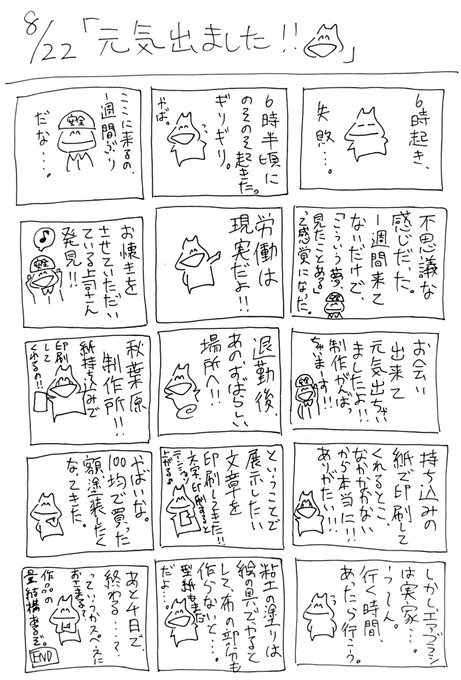 8/22「元気出ました!!」
6時起き、
失敗…。
6時半頃に
のそのそ起きた。
ギリギリ。
やば。
ここに来るの、
1週間ぶり
だな…。
安全
不思議な
感じだった。
1週間来て
ないだけで、
「こういう夢、
見たことある」
って感覚になった。
労働は
現実だよ!!
お懐きを
させていただい
ている上司さん
発見!!
♪
安全
お会い
出来て
元気出ちゃい
ましたよ!!
制作がんば
っちゃいます!!
退勤後
あのすばらしい
場所へ!!
秋葉原
制作所!!
紙持ち込みで
印刷
して
くれるの!!
持ち込みの
紙で印刷して
くれるとこ、
なかなかない
から本当に!!
ありがたい!!
ということで
展示したい
文章を
印刷してきた!!
文字、印刷すると
テンション
上がるね♪
やばいな。
100均で買った
額塗装したく
なってきた。
しかしエアブラシ
は実家…。
うーん。
行く時間、
あったら行こう。
粘土の塗りは
絵の具でやると
して、布の部分も
作らないと…。
型紙もまだ
だよ…。
あと4日で、
終わる…?
っていうかスペースに
おさまる?
作品の
量結構あるぞ。
END